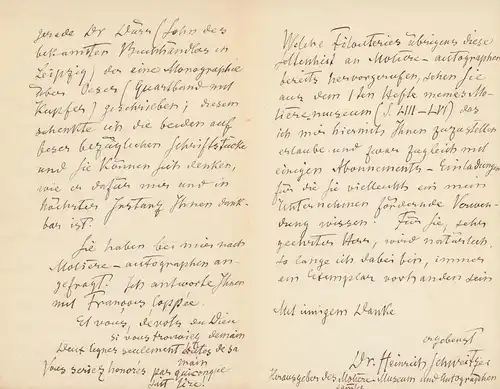 gerade Dr Dürr (Sohn des
bekannten Buchhändlers in
Leipzig) der eine Monographie
über Oeser (Quartband mit
Kupfer) geschrieben; diesem
schenkte ich die beiden auf
Oeser bezüglichen Schriftstücke
und Sie können sich denken,
wie er dafür mir und in
höchster Instanz Ihnen dank-
bar ist.
Sie haben bei mir nach
Molière-autographen an-
gefragt! Ich antworte Ihnen
mit François Coppée.
Et vous, dévots du Dieu
si vous trouviez demain
Deux lignes seulement toutes de sa
main
Vous seriez honorés par quiconque
sait lire!
Welche Filouterien übrigens diese
Seltenheit an Molière-autographen
bereits hervorgerufen, sehen Sie
aus dem 1ten Hefte meines Mo-
lièremuseum (S. LIII-LVI) das
ich mir hiermit Ihnen zuzustellen
erlaube und zwar zugleich mit
einigen Abonnements-Einladungen
für die Sie vielleicht ein mein
Unternehmen fördernde Verwen-
dung wissen. Für Sie, sehr
geehrter Herr, wird natürlich,
so lange ich dabei bin, immer
ein Exemplar vorhanden sein
Mit innigem Danke
ergebenst
Dr. Heinrich Schweitzer
Herausgeber des Molière-Museum und Autographen